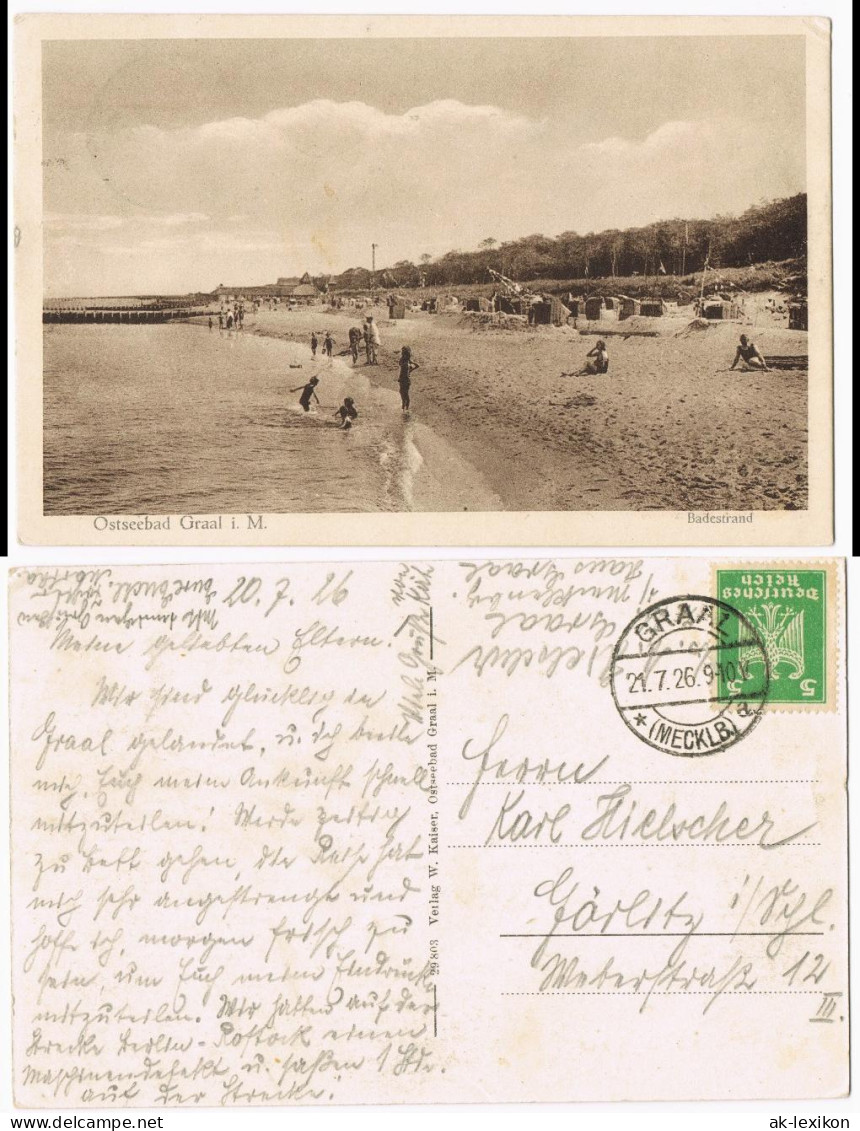 Ostseebad Graal i. M.
Badestrand
20. 7. 26
Meine geliebten Eltern.
Wir sind glücklig in
Graal gelandet, u. ich beeile
mich, Euch meine Ankunft schnell
mitzuteilen! Werde zeitig
zu Bett gehen, die Reise hat
mich sehr angestrengt und
hoffe ich, morgen frisch zu
sein, um Euch meine Eindrücke
mitzuteilen. Wir hatten auf der
Strecke Berlin-Rostock einen
Maschinendefekt u. saßen 1 Stde.
auf der Strecke!
Viele Grüße
29803 Verlag W. Kaiser, Ostseebad Graal i. M.
Hielscher
Graal
i/ Mecklenbg.
Haus Graal
GRAAL
21.7.26.9-10V.
* (MECKLB.) a
Deutsches
Reich
5 5
Herrn
Karl Hielscher
Görlitz i/Schl.
Weberstraße 12
III.
ak-lexikon